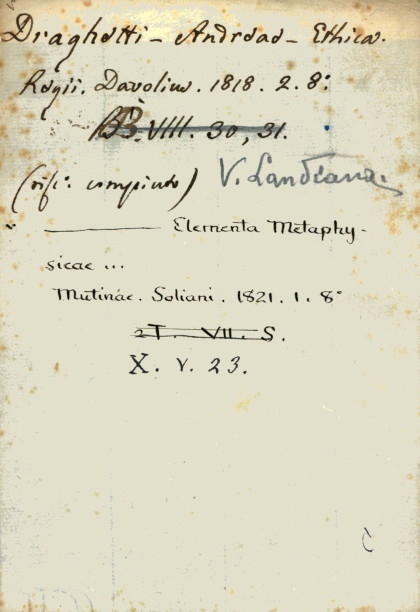 Draghetti - Andreae - Ethica.
Regii. Davolim. 1818. 2. 8:
BB. VIII. 30, 31.
(rifi: compiuto) V. Landiana.
———— Elementa Metaphy-
sicae ...
Mutinae. Soliani. 1821. 1. 8°
2T. VII. S.
X. V. 23.